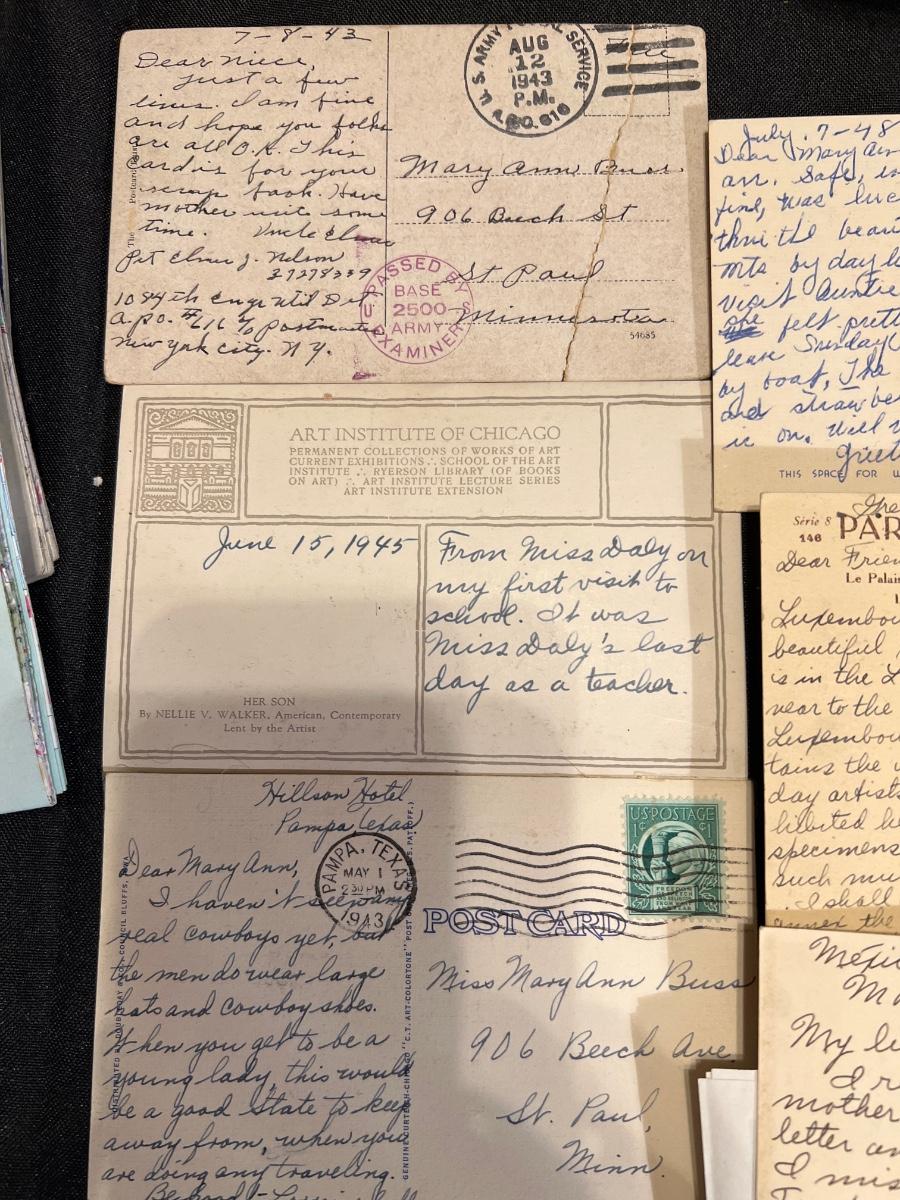 7-8-43
Dear Niece,
Just a few
lines. I am fine
and hope you folks
are all O.K. This
Card is for your
scrap book. Have
mother write some
time. Uncle Elmer
Pvt Elmer J. Nelson
37278339
1084th Engr Util Det
a.p.o. #616 c/o Postmaster
New york city. N.Y.
The
U. S. ARMY POSTAL SERVICE
AUG
12
1943
P.M.
A.P.O. 616
Free
Mary Ann Buss.
906 Beech St
St Paul
Minnesota
54685
PASSED BY
U S
BASE
2500
ARMY
EXAMINER
ART INSTITUTE OF CHICAGO
PERMANENT COLLECTIONS OF WORKS OF ART
CURRENT EXHIBITIONS ∴ SCHOOL OF THE ART
INSTITUTE ∴ RYERSON LIBRARY (OF BOOKS
ON ART) ∴ ART INSTITUTE LECTURE SERIES
ART INSTITUTE EXTENSION
June 15, 1945
From Miss Daly on
my first visit to
school. It was
Miss Daly's last
day as a teacher.
HER SON
By NELLIE V. WALKER, American, Contemporary
Lent by the Artist
Hillson Hotel
Pampa Texas
PAMPA, TEXAS
MAY 1
2 30 PM
1943
Dear Mary Ann,
I haven't seen any
real cowboys yet, but
the men do wear large
hats and cowboy shoes.
When you get to be a
young lady, this would
be a good State to keep
away from, when you
are doing any traveling.
GENUINE CURTEICH-CHICAGO "C.T. ART-COLORTONE" POST
U.S. POSTAGE
1¢ 1¢
FREEDOM
OF SPEECH
AND RELIGION
FROM WANT
AND FEAR
POST CARD
Miss Mary Ann Buss
906 Beech Ave
St. Paul,
Minn.
July. 7-48
Dear Mary Ann
arr. Safe,
fine, was
thru the
mts by day
visit Auntie
she felt
leave Sunday
by boat, The
and
is on. Will
THIS SPACE FOR
Série 8
146
PAR
Dear
Le Palais
beautiful
is in the
near to the
tains the
day
specimens
such
I shall
annex the
My
mother
letter
I